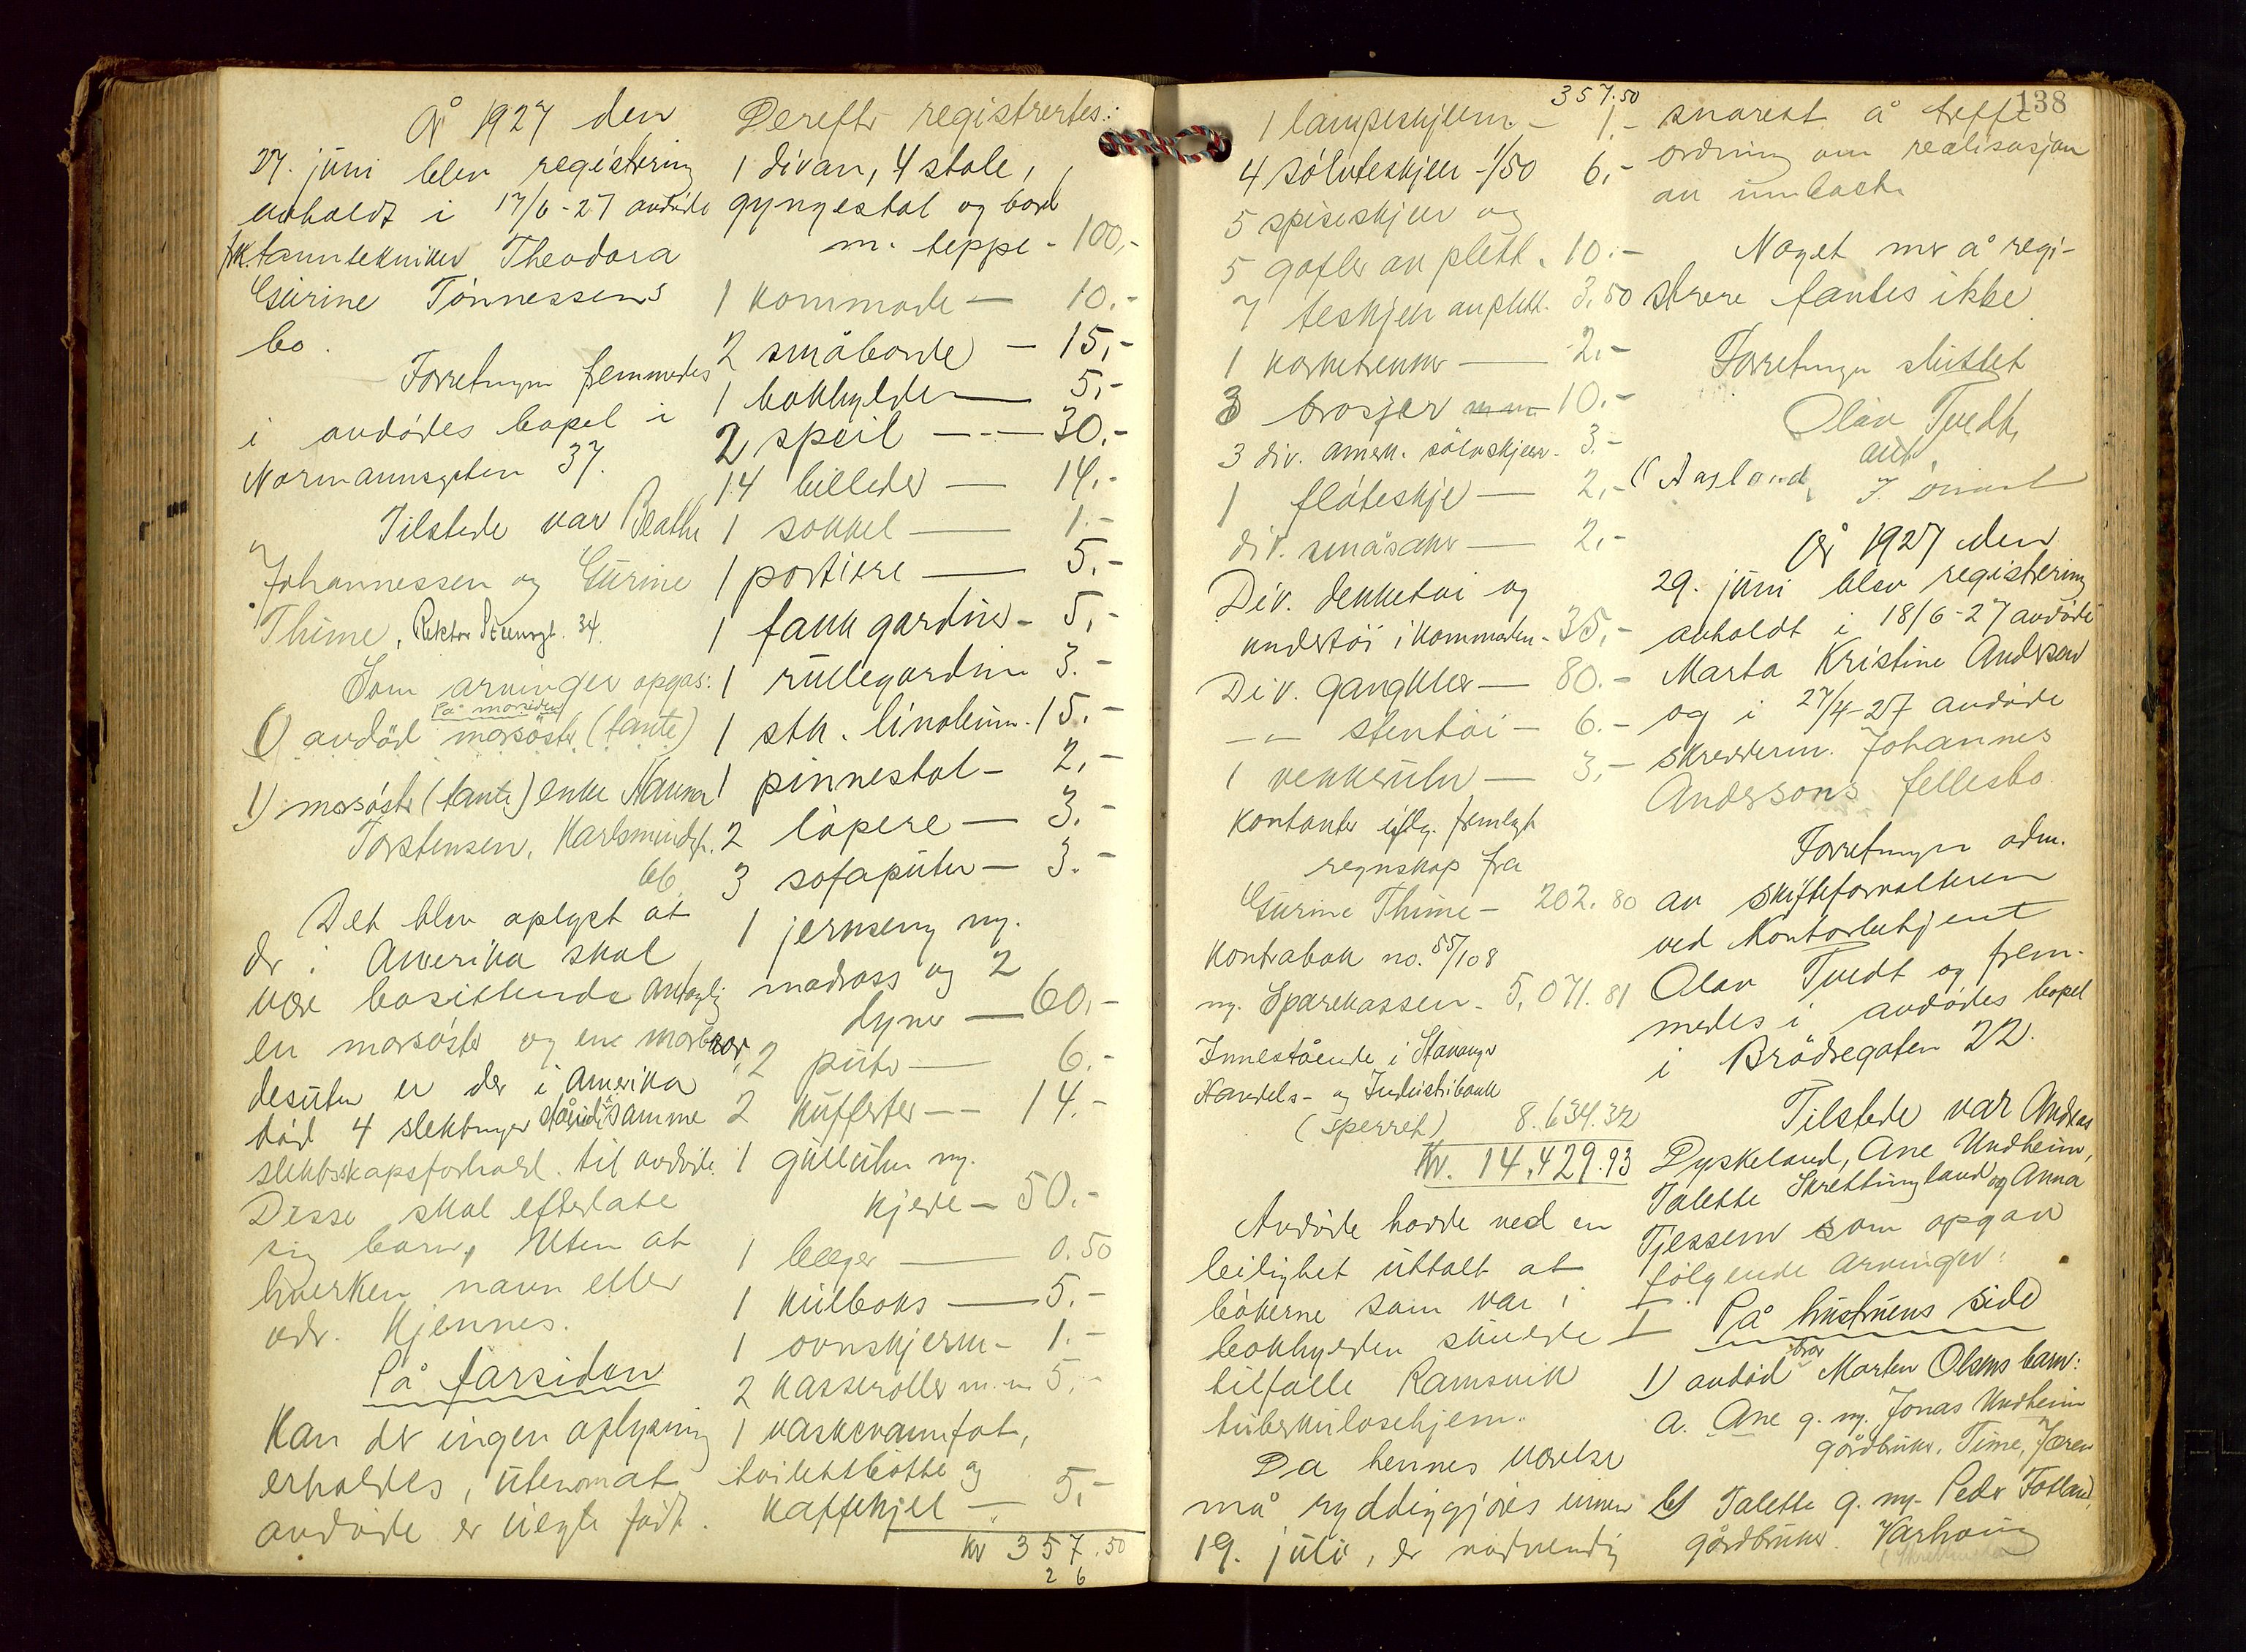 År 1927 den
27. juni blev registrering
avholdt i 17/6-27 avdøde
frk. tanntekniker Theodora
Gurine Tønnessens
bo.
Forretningen fremmedes
i avdødes bopel i
Normannsgaten 37.
Tilstede var Beathe
Johannessen og Gurine
Thime, Rektor Steensgt. 34.
Som arvinger opgas:
På morsiden
1) avdød morsøster (tante)
1) morsøster (tante) enke Hanna
Torstensen, Karlsminnegt.
66.
Det blev oplyst at
der i Amerika skal
være bosittende antagelig
en morsøster og en morbror,
desuten er der i Amerika
død 4 slektninger stående i samme
slektskapsforhold til avdøde.
Disse skal efterlate
sig barn, uten at
hverken navn eller
adr. kjennes.
På farsiden
kan der ingen oplysning
erholdes, utenom at
avdøde er uegte født.
Derefter registrertes:
1 divan, 4 stole,
gyngestol og bord
m. teppe - 100,-
1 kommode — 10.-
2 småborde — 15,-
1 bokhylde — 5,-
2 speil — 30.-
14 billeder — 14.-
1 sokkel — 1.-
1 portiere — 5.-
1 fakk gardiner - 5,-
1 rullegardin 3.-
1 stk. linoleum - 15.-
1 pinnestol - 2,-
2 løpere — 3.-
3 sofaputer — 3.-
1 jernseng m.
madrass og 2
dyner — 60,-
2 puter — 6.-
2 kufferter — 14.-
1 gullur m.
kjede — 50.-
1 beger — 0.50
1 kulboks — 5.-
1 ovnskjerm - 1.-
2 kasseroller m.m. 5,-
1 vaskevannfat,
toilettbøtte og
kaffekjel — 5,-
kr 357.50
2 6
357.50
1 lampeskjerm — 1.-
4 sølvteskjeer - 1/50 6,-
5 spiseskjeer og
5 gafler av plett. 10.-
7 teskjeer av plett. 3.50
1 korketrekker — 2,-
3 brosjer m.m. 10.-
3 div. amerk. sølvskjeer. 3.-
1 fløteskje — 2,-
div. småsaker — 2,-
Div. dekketøi og
undertøi i kommoden - 35,-
Div. gangklær — 80.-
-"- stentøi — 6.-
1 vekkerur — 3,-
Kontanter iflg. fremlagt
regnskap fra
Gurine Thime - 202.80
Kontrabok no. 55/108
m. Sparekassen - 5.071.81
Innestående i Stavanger
Handels- og Industribank
(sperret) 8.634.32
Kr. 14.429.93
Avdøde hadde ved en
leilighet uttalt at
bøkerne som var i
bokhylden skulde
tilfalle Ramsvik
tuberkulosehjem.
Da hennes værelse
må ryddiggjøres innen
19. juli, er nødvendig
138
snarest å treffe
ordning om realisasjon
av innboet.
Noget mer å regi-
strere fantes ikke.
Forretningen sluttet
Olav Tvedt,
aut
Aasland
År 1927 den
29. juni blev registrering
avholdt i 18/6-27 avdøde
Marta Kristine Anderson
og i 27/4-27 avdøde
skredderm. Johannes
Andersons fellesbo.
Forretningen adm.
av skifteforvalteren
ved kontorbetjent
Olav Tvedt og frem-
medes i avdødes bopel
i Brødregaten 22.
Tilstede var Andreas
Dyskeland, Ane Undheim,
Talette Skrettingland og Anna
Tjessem som opgav
følgende arvinger:
I På hustruens side
1) avdød bror Morten Olsens barn:
a. Ane g. m. Jonas Undheim
gårdbruker, Time, Jæren
b) Talette g. m. Peder Fotland,
gårdbruker. Varhaug
(Skrettingland)